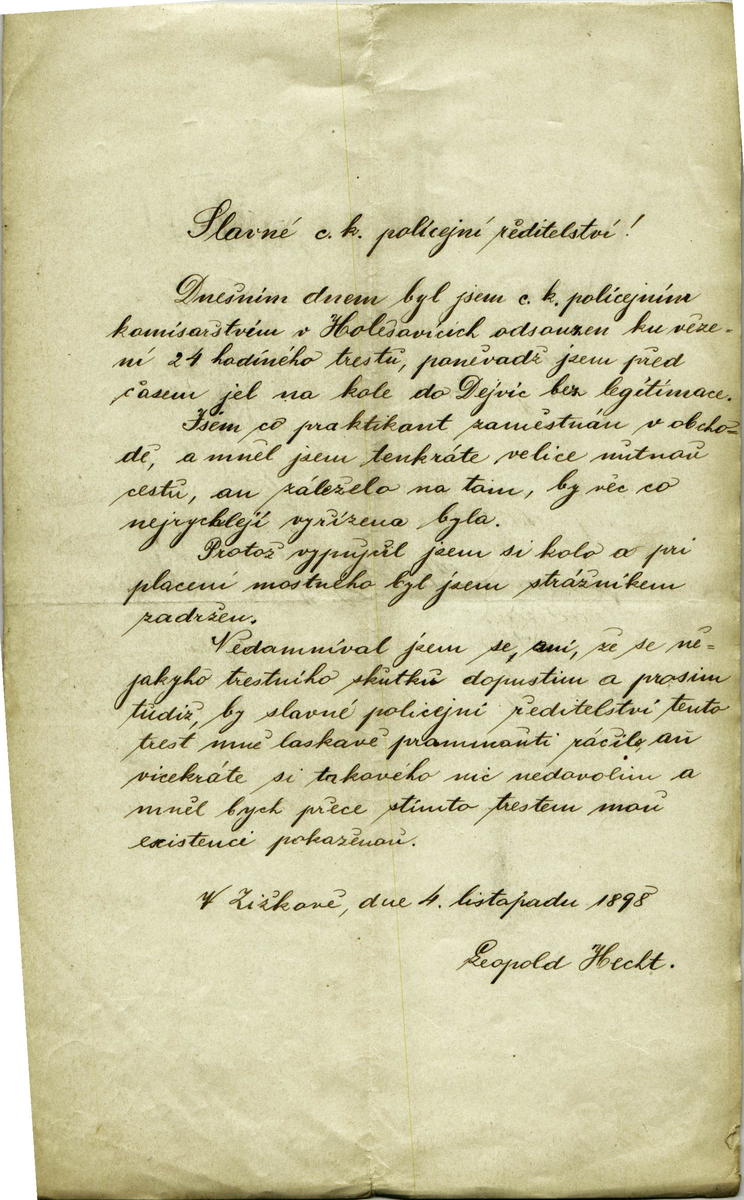 Slavné c. k. polícejní ředitelství!
Dnešním dnem byl jsem c. k. polícejním
komisařstvém v Holešavicích odsouzen ku věze-
ní 24 hodíného trestu, poněvadž jsem před
časem jel na kole do Dejvic bez legitimace.
Jsem co praktikant zaměstnán v obcho-
dě, a mněl jsem tenkráte velice nutnou
cestu, an záleželo na tom, by věc co
nejrychlejí vyřízena byla.
Protož vypujčil jsem si kolo a při
placení mostného byl jsem strážníkem
zadržen.
Nedamníval jsem se, ani, že se ně-
jakýho trestního skutku dopustim a prosim
tudiž, by slavné policejní ředitelství tento
trest mně laskavě prominouti ráčilo, an
vícekráte si takového nic nedovolim a
mněl bych přece stímto trestem mou
existenci pokaženou.
V Žižkově, dne 4. listopadu 1898
Leopold Hecht.